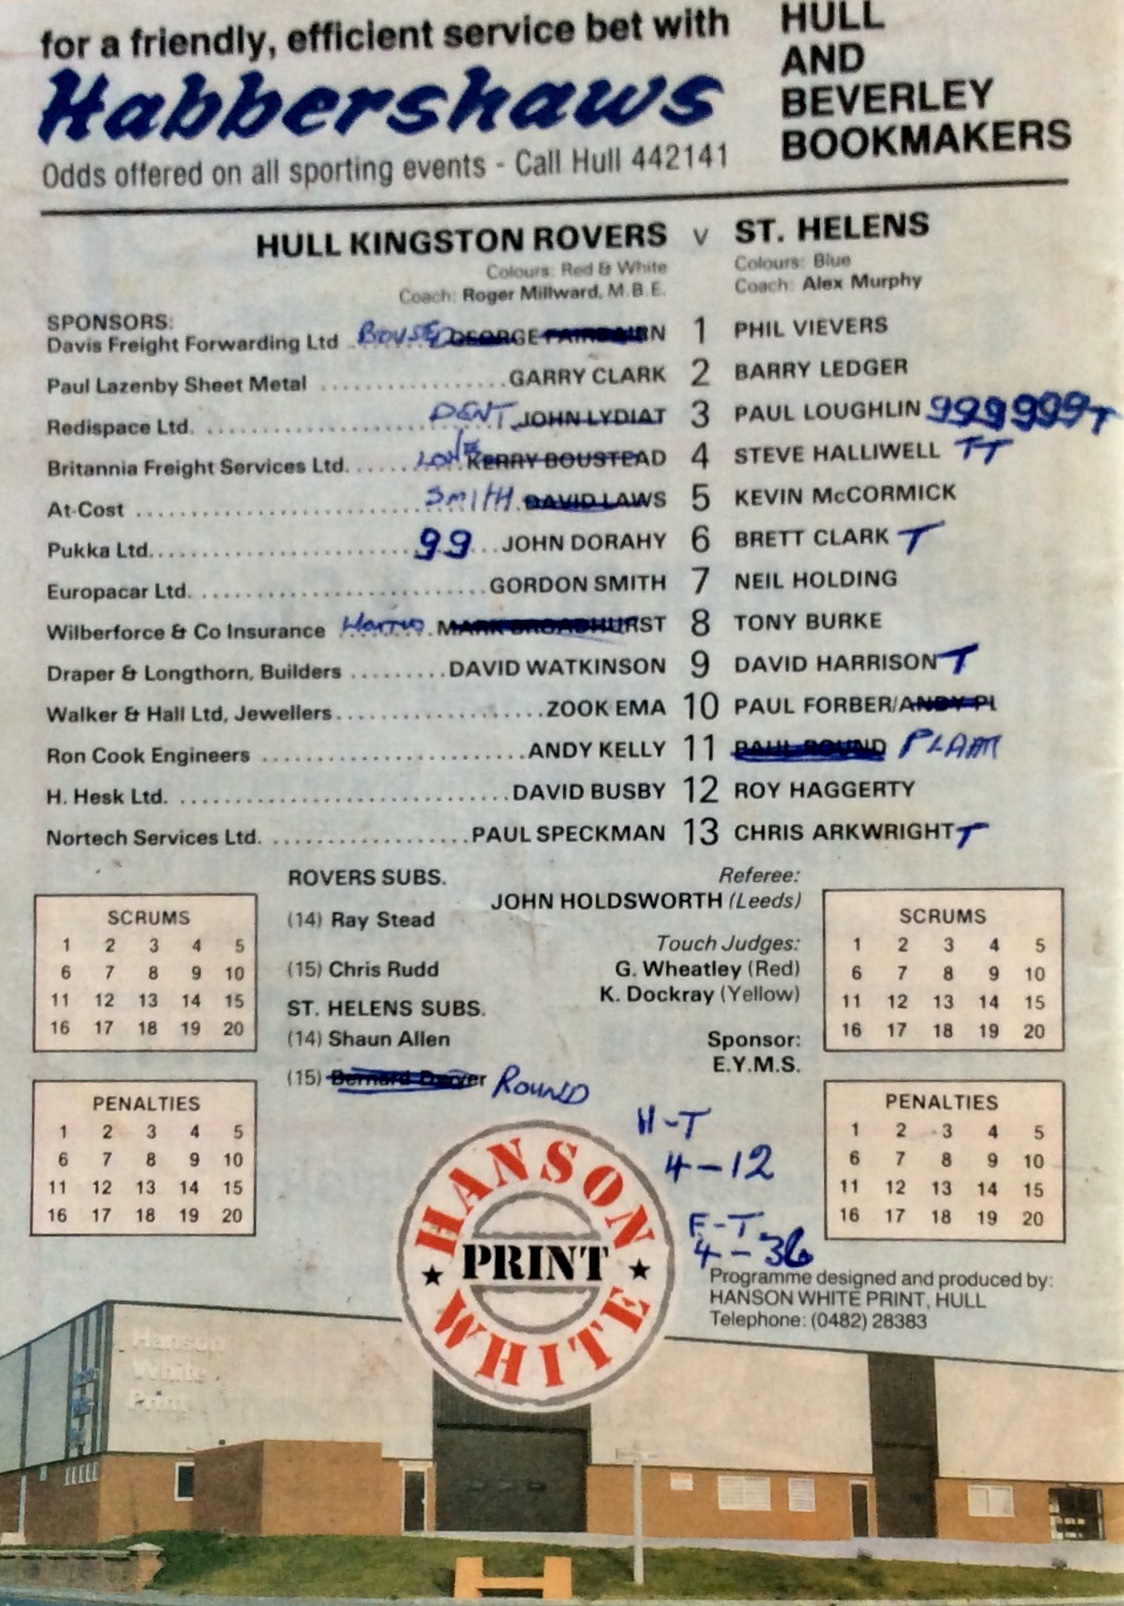 for a friendly, efficient service bet with
Habbershaws
Odds offered on all sporting events - Call Hull 442141
HULL
AND
BEVERLEY
BOOKMAKERS
HULL KINGSTON ROVERS v ST. HELENS
Colours: Red & White
Coach: Roger Millward, M.B.E.
Colours: Blue
Coach: Alex Murphy
SPONSORS:
Davis Freight Forwarding Ltd GEORGE FAIRBAIRN 1 PHIL VIEVERS
Paul Lazenby Sheet Metal ................GARRY CLARK 2 BARRY LEDGER
Redispace Ltd. .................... DENT JOHN LYDIAT 3 PAUL LOUGHLIN 999999T
Britannia Freight Services Ltd....... LONE KERRY BOUSTEAD 4 STEVE HALLIWELL TT
At-Cost ......................... SMITH DAVID LAWS 5 KEVIN McCORMICK
Pukka Ltd....................... 99 ...JOHN DORAHY 6 BRETT CLARK T
Europacar Ltd. .........................GORDON SMITH 7 NEIL HOLDING
Wilberforce & Co Insurance MARK BROADHURST 8 TONY BURKE
Draper & Longthorn, Builders .........DAVID WATKINSON 9 DAVID HARRISON T
Walker & Hall Ltd, Jewellers..................ZOOK EMA 10 PAUL FORBER/ANDY PL
Ron Cook Engineers ........................ANDY KELLY 11 PAUL ROUND PLATT
H. Hesk Ltd. .............................DAVID BUSBY 12 ROY HAGGERTY
Nortech Services Ltd. .................PAUL SPECKMAN 13 CHRIS ARKWRIGHT T
ROVERS SUBS.
(14) Ray Stead
(15) Chris Rudd
ST. HELENS SUBS.
(14) Shaun Allen
(15) Bernard Dwyer ROUND
Referee:
JOHN HOLDSWORTH (Leeds)
Touch Judges:
G. Wheatley (Red)
K. Dockray (Yellow)
Sponsor:
E.Y.M.S.
SCRUMS
1 2 3 4 5
6 7 8 9 10
11 12 13 14 15
16 17 18 19 20
PENALTIES
1 2 3 4 5
6 7 8 9 10
11 12 13 14 15
16 17 18 19 20
SCRUMS
1 2 3 4 5
6 7 8 9 10
11 12 13 14 15
16 17 18 19 20
PENALTIES
1 2 3 4 5
6 7 8 9 10
11 12 13 14 15
16 17 18 19 20
H-T
4-12
F-T
4-36
HANSON
PRINT
WHITE
Programme designed and produced by:
HANSON WHITE PRINT, HULL
Telephone: (0482) 28383
Hanson
White
Print